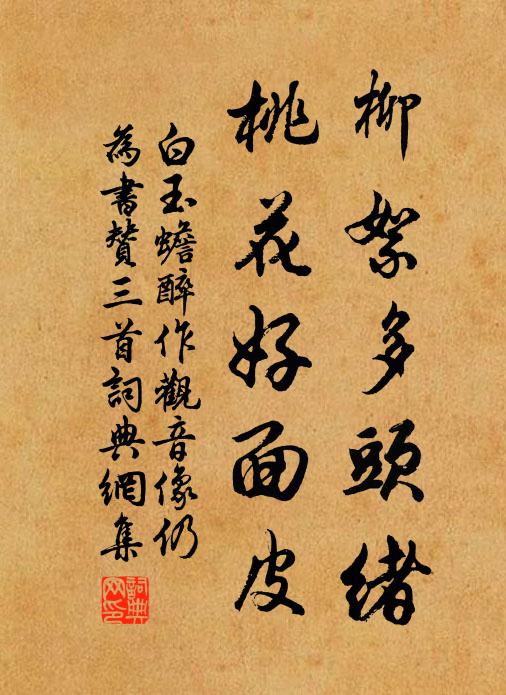 柳絮多頭緒
桃花好面皮
白玉蟾醉作觀音像仍
為書贊三首詞典網集
詞典網印